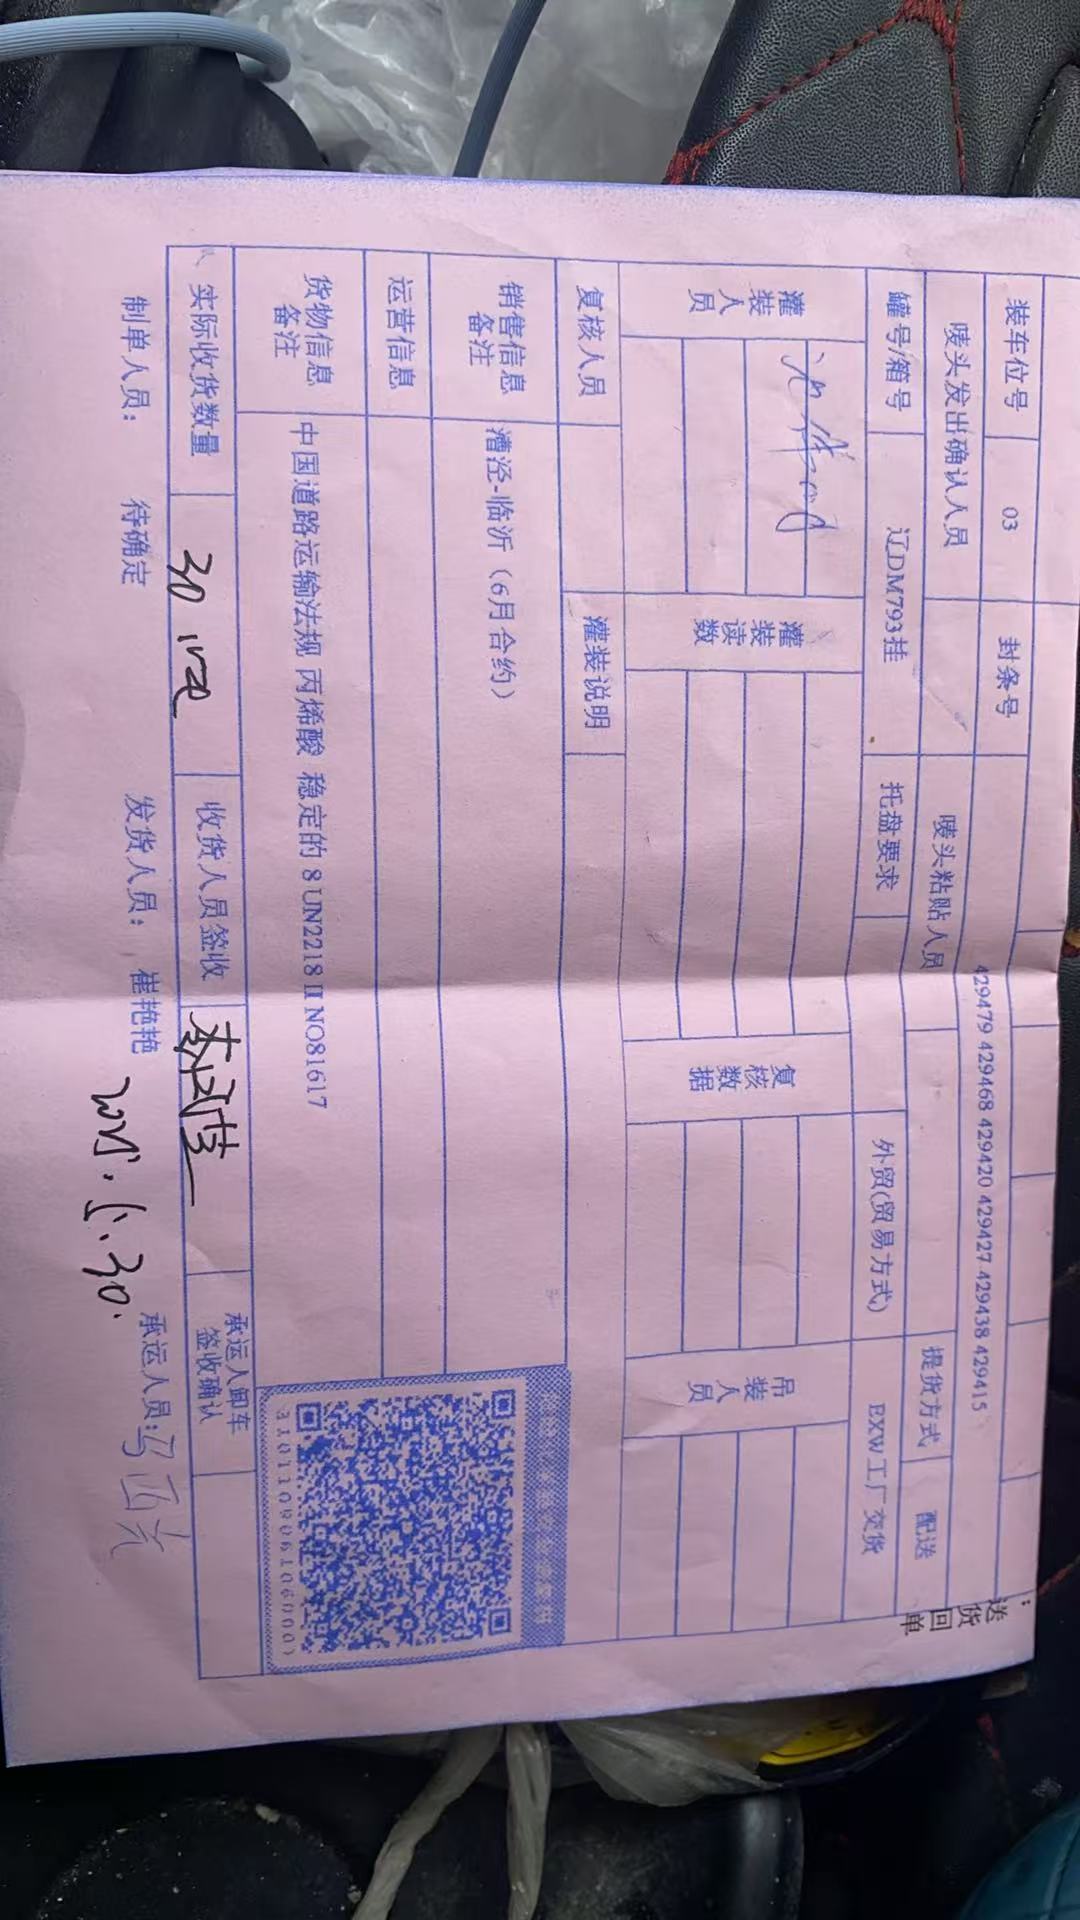 送货回单
装车位号 03 封条号 429479 429468 429420 429427 429438 429415
唛头发出确认人员 唛头粘贴人员 提货方式 配送
罐号/箱号 辽DM793挂 托盘要求 外贸(贸易方式) EXW工厂交货
灌装人员 灌装读数 复核数据 吊装人员
复核人员 灌装说明
销售信息备注 漕泾-临沂（6月合约）
运营信息
货物信息备注 中国道路运输法规 丙烯酸 稳定的 8 UN2218 II NO81617
实际收货数量 30 收货人员签收 承运人卸车签收确认
制单人员： 待确定 发货人员： 崔艳艳 承运人员：